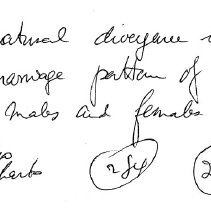 natural divergence
marriage pattern of
males and females
284
2